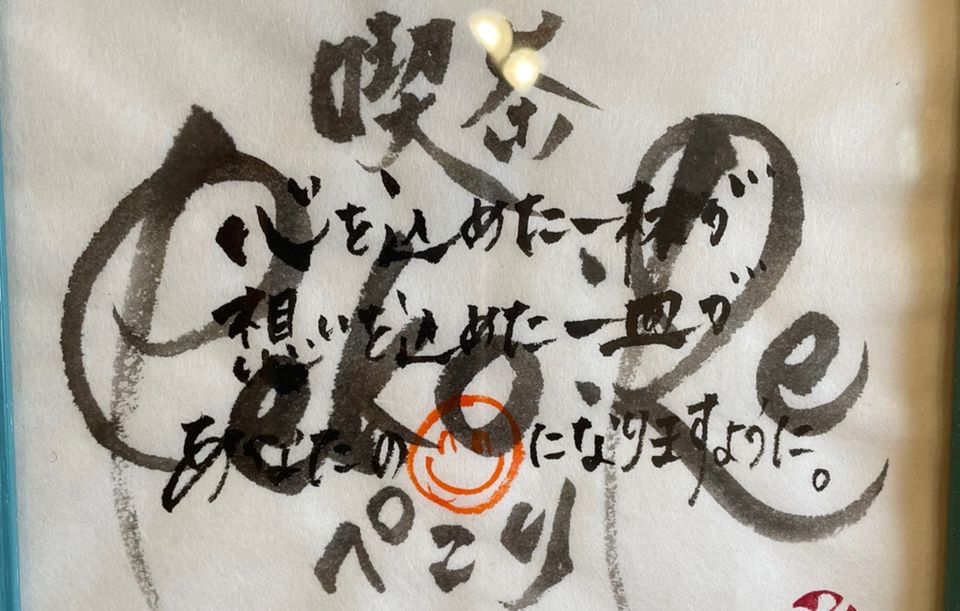 喫茶
PekoRe
心を込めた一杯が
想いを込めた一皿が
あなたの
になりますように。
ぺこり